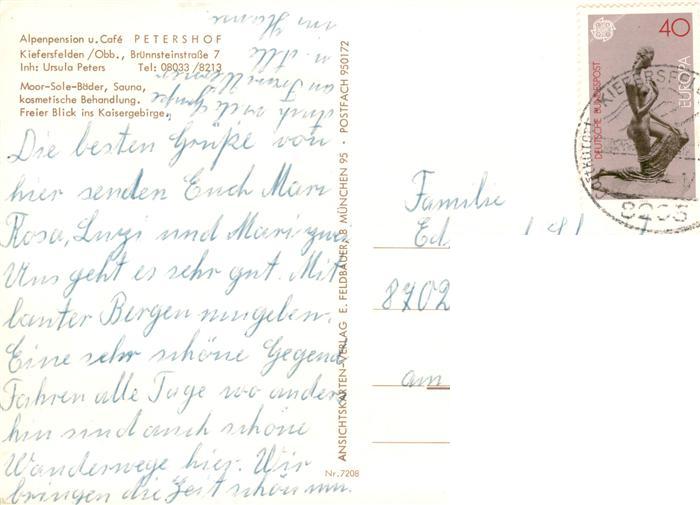 Alpenpension u. Café PETERSHOF
Kiefersfelden/Obb., Brünnsteinstraße 7
Inh: Ursula Peters Tel: 08033/8213
Moor-Sole-Bäder, Sauna,
kosmetische Behandlung.
Freier Blick ins Kaisergebirge.
Die besten Grüße von
hier senden Euch Mari
Rosa, Luzi und Mari
Uns geht es sehr gut. Mit
lauter Bergen umgeben.
Eine sehr schöne Gegend
Fahren alle Tage wo anders
hin sind auch schöne
Wanderwege hier. Wir
bringen die Zeit schon rum.
ANSICHTSKARTEN-VERLAG E. FELDBAUER, 8 MÜNCHEN 95 · POSTFACH 950172
Nr. 7208
40
DEUTSCHE BUNDESPOST
EUROPA
Familie
Ed
8702
am